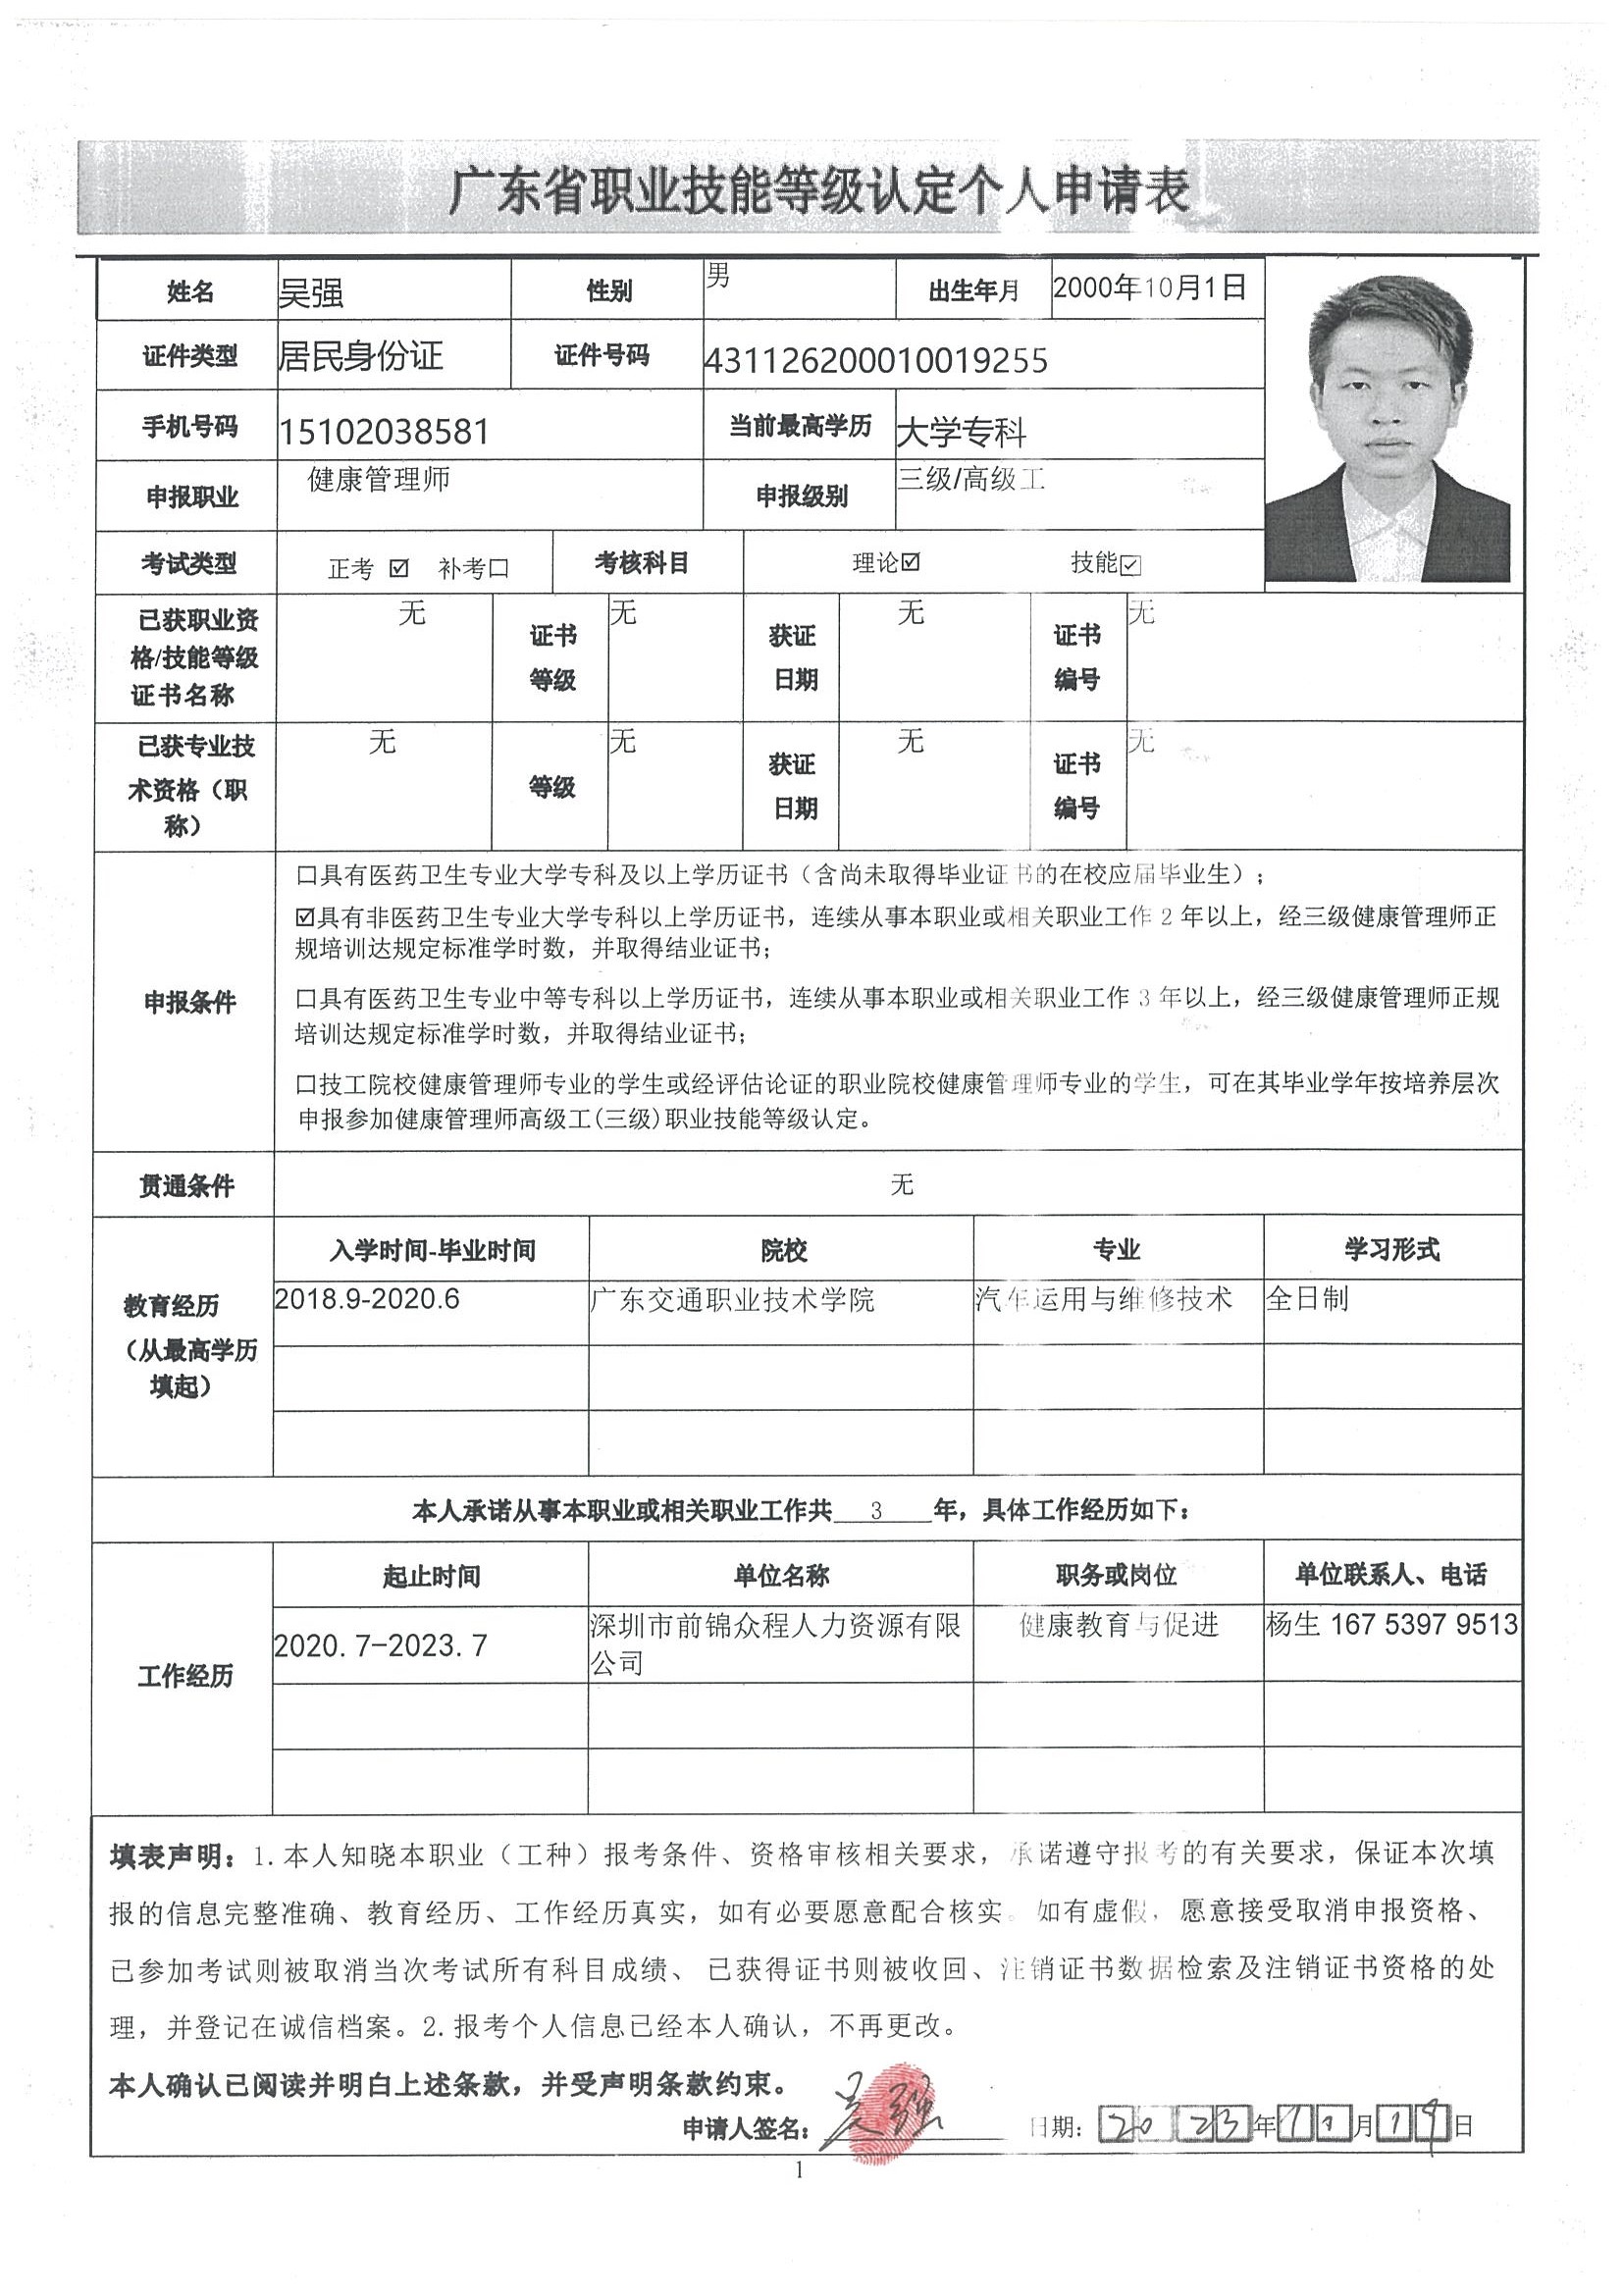 广东省职业技能等级认定个人申请表
姓名 吴强 性别 男 出生年月 2000年10月1日
证件类型 居民身份证 证件号码 431126200010019255
手机号码 15102038581 当前最高学历 大学专科
申报职业 健康管理师 申报级别 三级/高级工
考试类型 正考 ☑ 补考口 考核科目 理论☑ 技能☑
已获职业资格/技能等级证书名称 无 证书等级 无 获证日期 无 证书编号 无
已获专业技术资格（职称） 无 等级 无 获证日期 无 证书编号 无
申报条件
口具有医药卫生专业大学专科及以上学历证书（含尚未取得毕业证书的在校应届毕业生）；
☑具有非医药卫生专业大学专科以上学历证书，连续从事本职业或相关职业工作 2 年以上，经三级健康管理师正
规培训达规定标准学时数，并取得结业证书；
口具有医药卫生专业中等专科以上学历证书，连续从事本职业或相关职业工作 3 年以上，经三级健康管理师正规
培训达规定标准学时数，并取得结业证书；
口技工院校健康管理师专业的学生或经评估论证的职业院校健康管理师专业的学生，可在其毕业学年按培养层次
申报参加健康管理师高级工(三级)职业技能等级认定。
贯通条件 无
教育经历
（从最高学历
填起）
入学时间-毕业时间 院校 专业 学习形式
2018.9-2020.6 广东交通职业技术学院 汽车运用与维修技术 全日制
本人承诺从事本职业或相关职业工作共 3 年，具体工作经历如下：
工作经历
起止时间 单位名称 职务或岗位 单位联系人、电话
2020.7-2023.7 深圳市前锦众程人力资源有限公司 健康教育与促进 杨生 167 5397 9513
填表声明：1.本人知晓本职业（工种）报考条件、资格审核相关要求，承诺遵守报考的有关要求，保证本次填
报的信息完整准确、教育经历、工作经历真实，如有必要愿意配合核实。如有虚假，愿意接受取消申报资格、
已参加考试则被取消当次考试所有科目成绩、 已获得证书则被收回、注销证书数据检索及注销证书资格的处
理，并登记在诚信档案。2.报考个人信息已经本人确认，不再更改。
本人确认已阅读并明白上述条款，并受声明条款约束。
申请人签名： 吴强 日期： 2023年11月19日
1